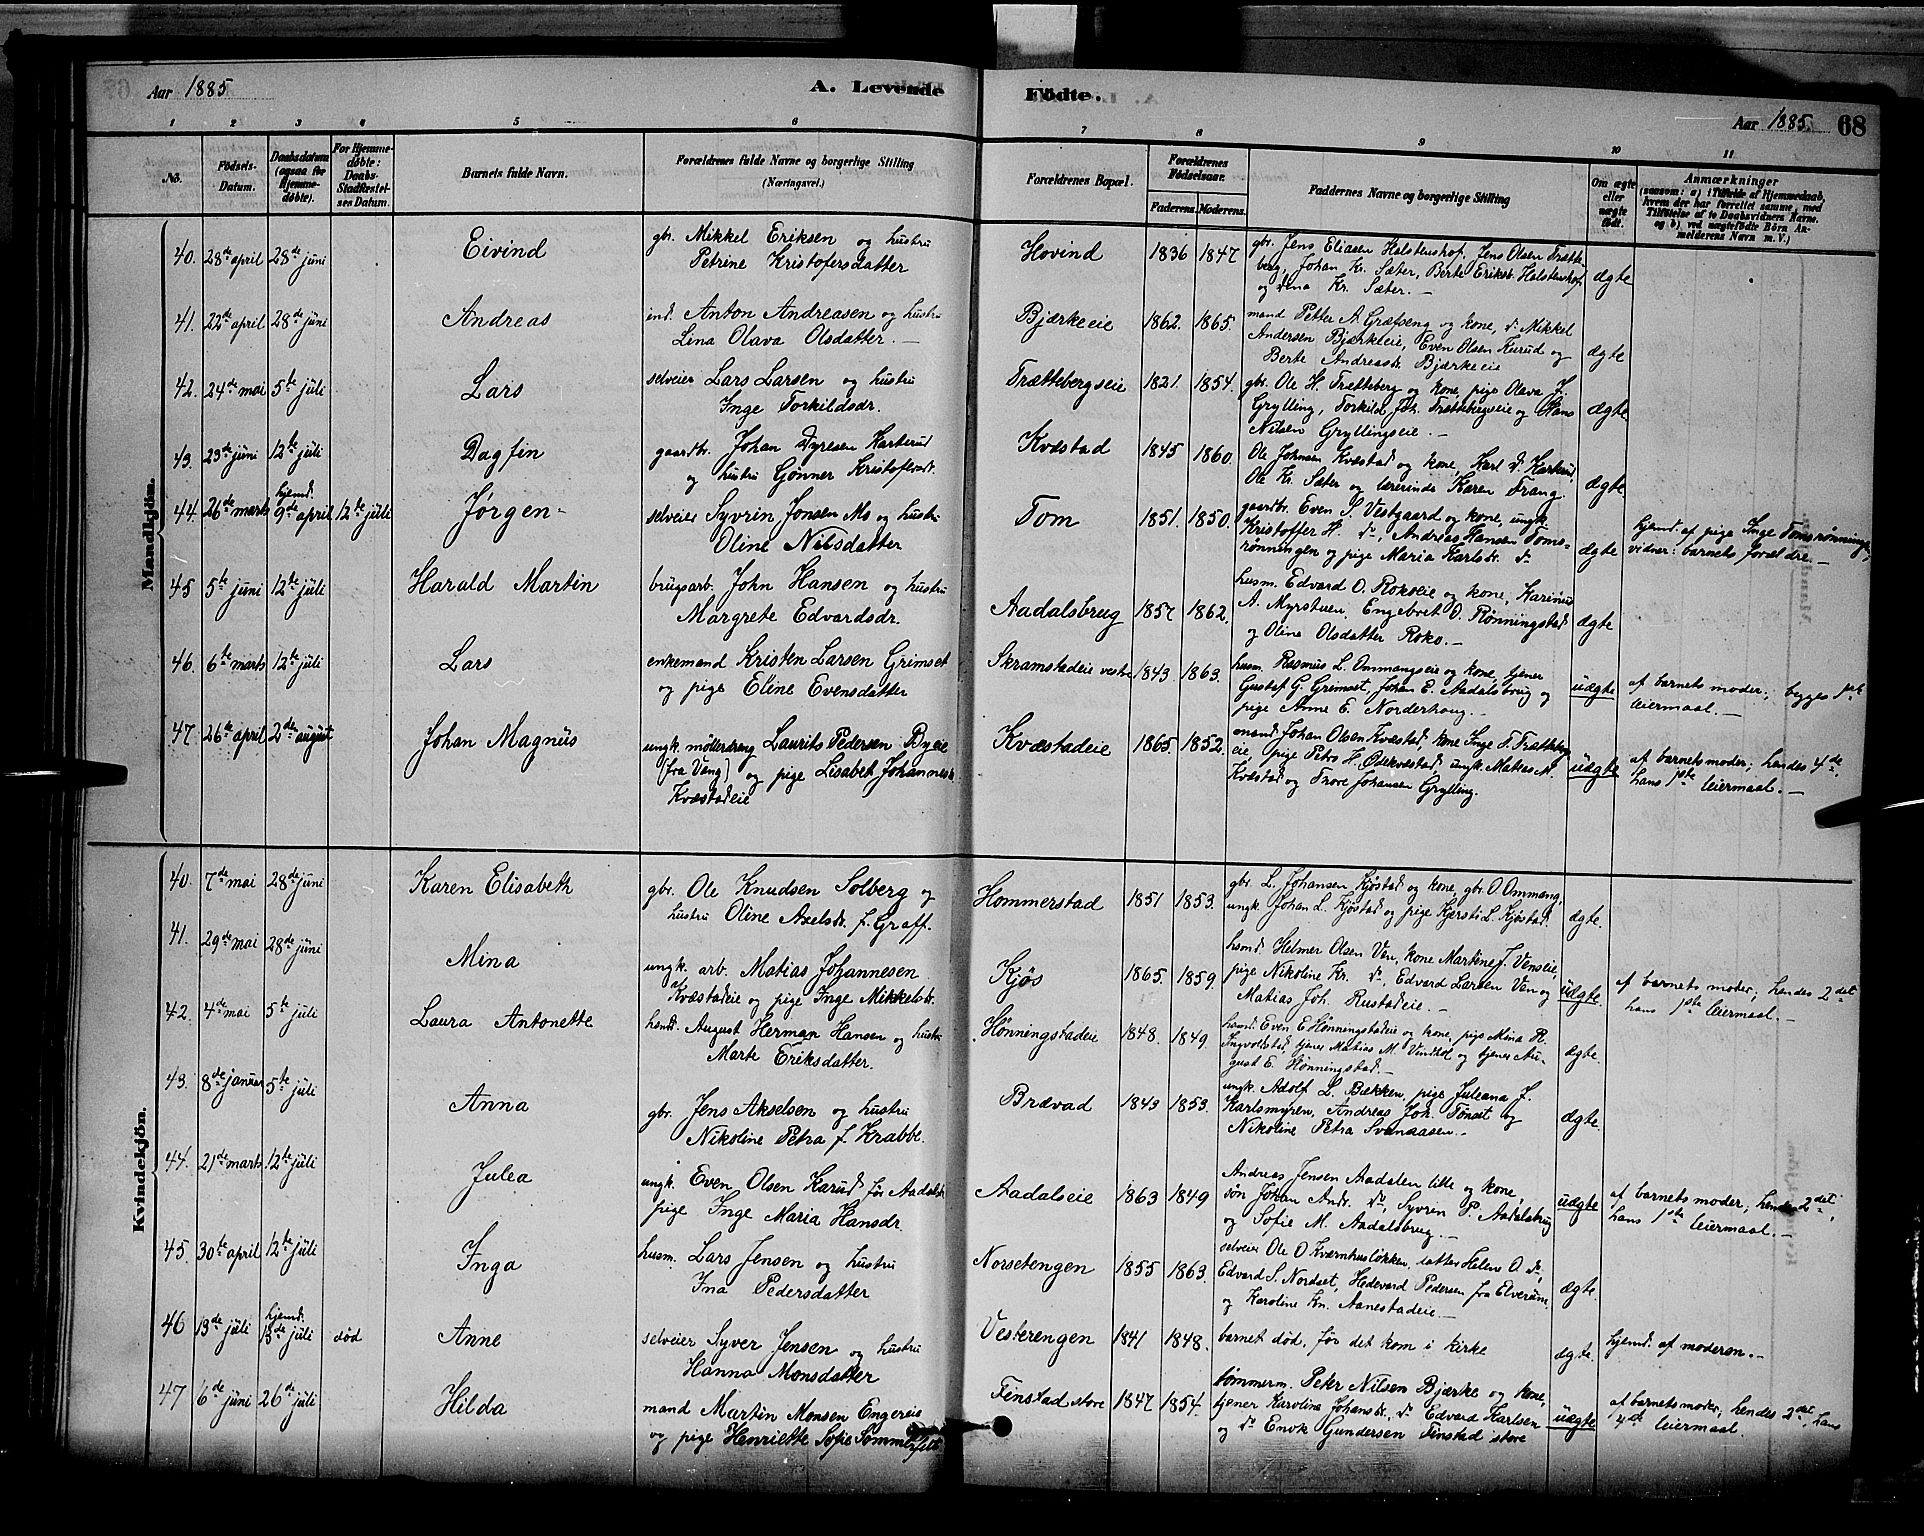 Aar 1885 A. Levende Födte. Aar 1885. 68
1 2 3 4 5 6 7 8 9 10 11
No. Födsels-Datum. Daabsdatum (ogsaa for Hjemmedöbte). For Hjemmedöbte: Daabs-Stadfæstelses Datum. Barnets fulde Navn. Forældrenes fulde Navne og borgerlige Stilling (Næringsvei.) Forældrenes Bopæl. Forældrenes Födselsaar. Faderens. Moderens. Faddernes Navne og borgerlige Stilling Om ægte eller uægte födt. Anmærkninger (saasom: a) i Tilfælde af Hjemmedaab, hvem der har forrettet samme, med Tilföielse af to Daabsvidners Navne. og b), ved uægtefödte Börn Anmelderens Navn m. V.)
Mandkjön.
40. 28de april 28de juni Eivind gbr. Mikkel Eriksen og hustru Petrine Kristofersdatter Hovind 1836 1847 gbr. Jens Eliasen Halstenshof, Jens Olsen Trætteberg, Johan Kr. Sæter, Berte Eriksdr. Halstenshof og Dina Kr. Sæter.— ægte
41. 22de april 28de juni Andreas ind. Anton Andreasen og hustru Lina Olava Olsdatter.— Bjærkeeie 1862. 1865. mand Petter A. Græfseng og kone, do Mikkel Andersen Bjærkeeie, Even Olsen Kurud og Berte Andreasdr. Bjærkeeie ægte
42. 24de mai 5te juli Lars selveier Lars Larsen og hustru Inge Torkildsdr. Trættebergseie 1821. 1854. gbr. Ole H. Trætteberg og kone, pige Olava J. Grylling, Torkild Joh. Trættebergseie og Hans Nilsen Gryllingseie.— ægte
43. 23de juni 12te juli Dagfin gaardbr. Johan Dyresen Karterud og hustru Gønner Kristofersdt. Kvæstad 1845 1860. Ole Johnsen Kvæstad og kone, Karl do Karterud, Ole Kr. Sæter og lærerinde Karen Frang. ægte
44. 26de marts hjemd. 9de april 12te juli Jørgen selveier Syvrin Jonsen Mo og hustru Oline Nilsdatter Tom 1851. 1850. gaardbr. Even S. Vestgaard og kone, ungk. Kristoffer H. do, Andreas Hansen Tomsrønningen og pige Maria Karlsdr. do ægte hjemd. af pige Inge Tomsrønningen, vidner: barnets forældre.—
45 5te juni 12te juli Harald Martin brugsarb. John Hansen og hustru Margrete Edvardsdr. Aadalsbrug 1857 1862. husm. Edvard O. Rokoeie og kone, Karinus A. Myrstuen, Engebret O. Rønningstad og Olina Olsdatter Roko.— ægte
46. 6te marts 12te juli Lars enkemand Kristen Larsen Grimset og pige Eline Evensdatter Skramstadeie vestre 1843 1863. husm. Rasmus L. Ommangseie og kone, tjener Gustaf G. Grimset, Johan E. Aadalsbrug og pige Anne E. Norderhaug.— uægte af barnets moder; begges 1ste leiermaal.—
47. 26te april 2de august Johan Magnus ungk. møllerdreng Laurits Pedersen Byeie (fra Vang) og pige Lisabet Johannesdr. Kvæstadeie Kvæstadeie 1865. 1852. mand Johan Olsen Kvæstad, kone Inge T. Trættebergeie, pige Petro H. Ødekvæstad, ungk. Matias M. Kvæstad og Tove Johansen Grylling. uægte af barnets moder; hendes 4de, hans 1ste leiermaal.—
Kvindekjön.
40. 7de mai 28de juni Karen Elisabeth gbr. Ole Knudsen Solberg og hustru Oline Axelsdr. f. Graff. Hommerstad 1851 1853. gbr. L. Johansen Kjøstad og kone, gbr. O. Ommang, ungk. Johan L. Kjøstad og pige Kjersti L. Kjøstad. ægte.
41. 29de mai 28de juni Mina ungk. arb. Matias Johannesen Kvæstadeie og pige Inge Mikkelsdr. Kjøs 1865. 1859. husmd. Helmer Olsen Ven, kone Martine J. Venseie, pige Nikoline Kr. do, Edvard Larsen Ven og Matias Joh. Rustadeie.— uægte. af barnets moder; hendes 2det hans 1ste leiermaal.—
42. 4de mai 5te juli Laura Antonette husmd. August Herman Hansen og hustru Marte Eriksdatter. Hønningstadeie 1848. 1849. husmd. Even E. Hønningstadeie og kone, pige Mina R. Ingvoldstad, tjener Matias M. Vindtol og tjener August E. Hønningstad.— ægte.
43. 8de januar 5te juli Anna gbr. Jens Akselsen og hustru Nikoline Petra f. Krabbe. Brævad 1843 1853. ungk. Adolf L. Bækken, pige Juleana J. Karlsmyren, Andreas Joh. Tønset og Nikoline Petra Svenaasen.— ægte.
44. 21de marts 12te juli Julea ungk. Even Olsen Karud før Aadalsbr. pige Inge Maria Hansdr. Aadalseie 1863 1849 Andreas Jensen Aadalen lille og kone, søn Johan Andr. do, Syvren P. Aadalsbrug og Sofie M. Aadalsbrug.— uægte af barnets moder; hendes 2det, hans 1ste leiermaal.—
45. 30te april 12te juli Inga husm. Lars Jensen og hustru Ina Pedersdatter Norsetengen 1855 1863. selveier Ole O. Kværnhusløkken, datter Helene O. do, Edvard S. Nordset, Hedevard Pedersen fra Elverum, og Karoline Kn. Aanestadeie.— ægte.
46 13de juli hjemd. 13de juli død Anne selveier Syver Jensen og hustru Hanna Monsdatter Vesterengen 1841 1848. barnet død, før det kom i kirke ægte. hjemd. af moderen.—
47 6te juni 26de juli Hilda mand Martin Monsen Engereie og pige Henriette Sofie Sommerfelt. Finstad store 1847 1854. tømmerm. Peder Nilsen Bjærke og kone, tjener Karolina Johansdr., do Edvard Karlsen og do Enok Gundersen Finstad store uægte af barnets moder; hendes 2det, hans 4de leiermaal.